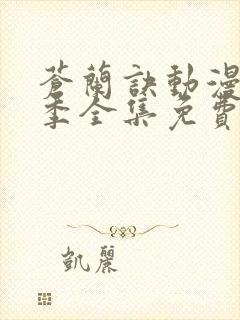 蒼蘭訣動漫
季全集免費
凱麗